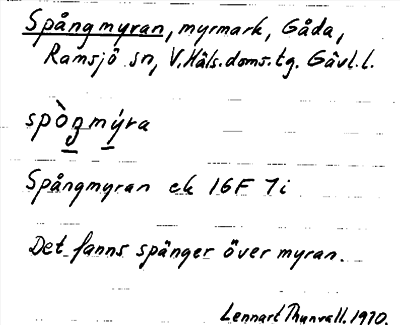 Spångmyran, myrmark, Gåda,
Ramsjö sn, V. Häls. doms. tg. Gävl. l.
spò̱gmý̱ra
Spångmyran ek 16F 7i
Det fanns spänger över myran.
Lennart Thunvall. 1970.